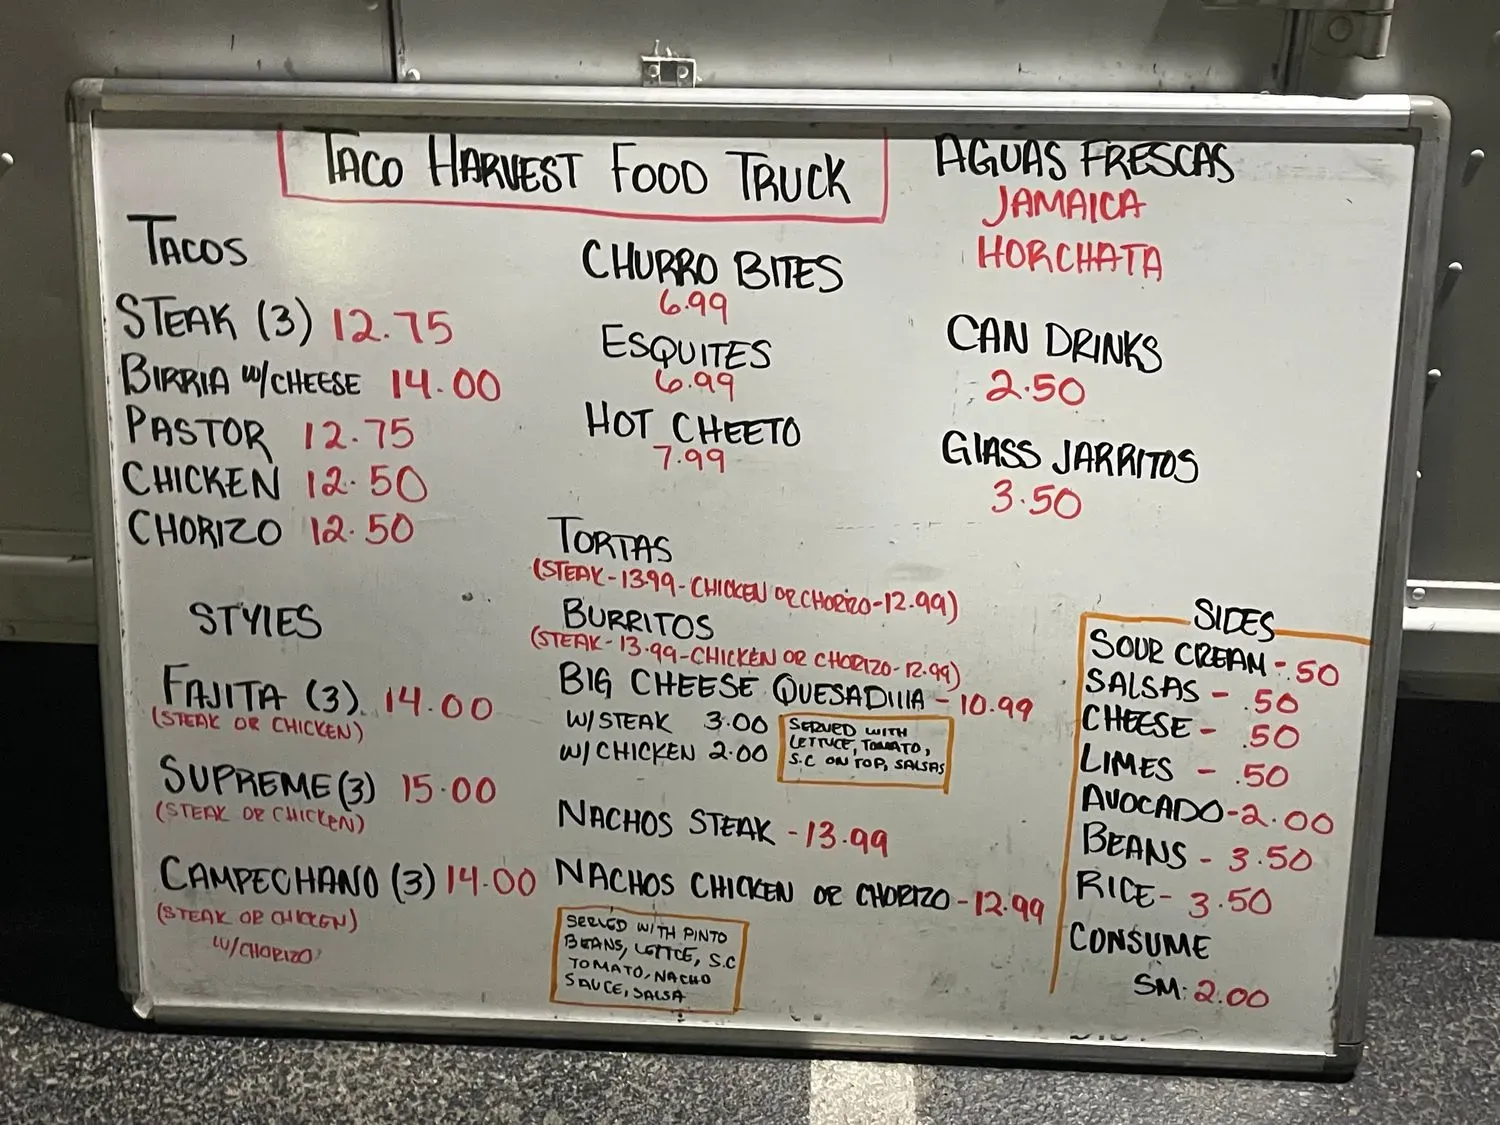 TACO HARVEST FOOD TRUCK
TACOS
STEAK (3) 12.75
BIRRIA W/CHEESE 14.00
PASTOR 12.75
CHICKEN 12.50
CHORIZO 12.50
STYLES
FAJITA (3) 14.00
(STEAK OR CHICKEN)
SUPREME (3) 15.00
(STEAK OR CHICKEN)
CAMPECHANO (3) 14.00
(STEAK OR CHICKEN)
W/CHORIZO
CHURRO BITES
6.99
ESQUITES
6.99
HOT CHEETO
7.99
TORTAS
(STEAK-13.99-CHICKEN OR CHORIZO-12.99)
BURRITOS
(STEAK-13.99-CHICKEN OR CHORIZO-12.99)
BIG CHEESE QUESADILLA - 10.99
W/STEAK 3.00
W/CHICKEN 2.00
SERVED WITH
LETTUCE, TOMATO,
S.C ON TOP, SALSAS
NACHOS STEAK - 13.99
NACHOS CHICKEN OR CHORIZO - 12.99
SERVED WITH PINTO
BEANS, LETTCE, S.C
TOMATO, NACHO
SAUCE, SALSA
AGUAS FRESCAS
JAMAICA
HORCHATA
CAN DRINKS
2.50
GLASS JARRITOS
3.50
SIDES
SOUR CREAM - .50
SALSAS - .50
CHEESE - .50
LIMES - .50
AVOCADO - 2.00
BEANS - 3.50
RICE - 3.50
CONSUME
SM: 2.00